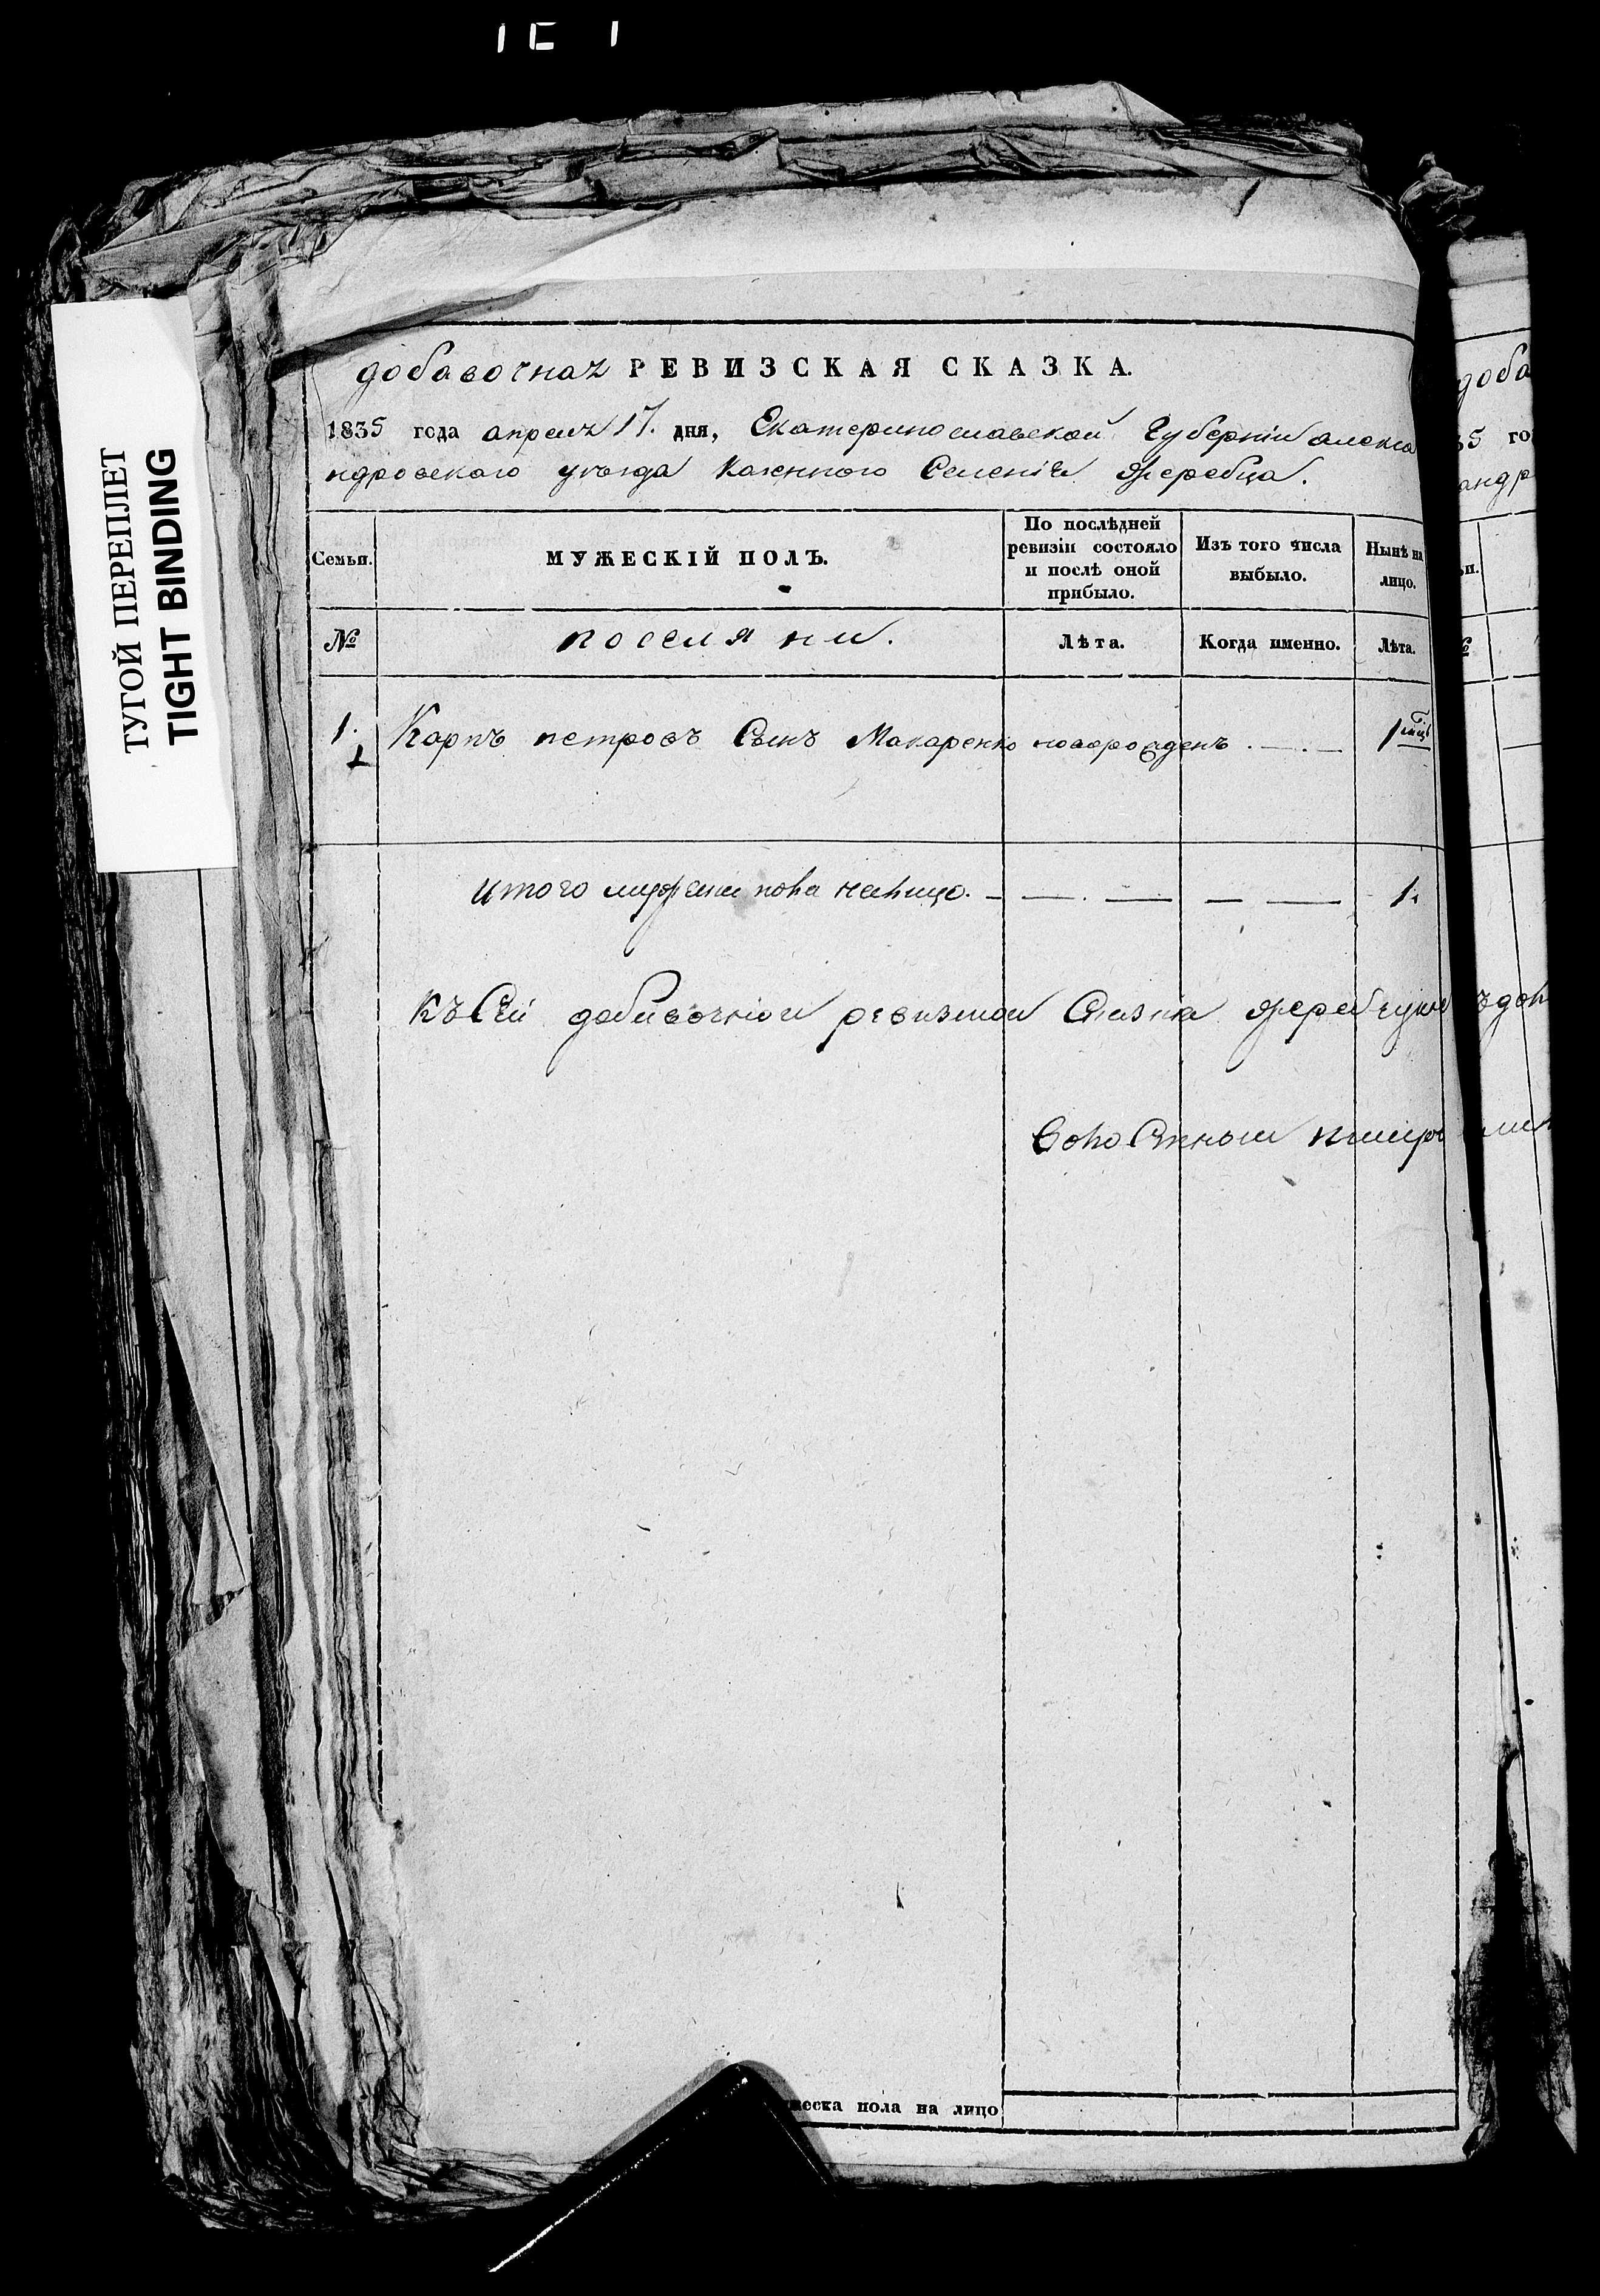 ТУГОЙ ПЕРЕПЛЕТ
TIGHT BINDING
добавочная РЕВИЗСКАЯ СКАЗКА.
1835 года апреля 17. дня, Екатеринославской Губерніи алекса
ндровского уѣзда казенного Селенія Жеребца.
Семьи.
МУЖЕСКІЙ ПОЛЪ.
По послѣдней ревизіи состояло и послѣ оной прибыло.
Изъ того числа выбыло.
Нынѣ на лицо.
№
поселяни.
Лѣта.
Когда именно.
Лѣта.
1. 1 Карпъ петровъ Сынъ Макаренко новорожденъ . — . — 1 мѣц
итого мужеска пола налицо. — — . — — — 1.
Къ Сей добавочной ревизкой Сказка
Волостный писарь
еска пола на лицо
доба
35 го
андр